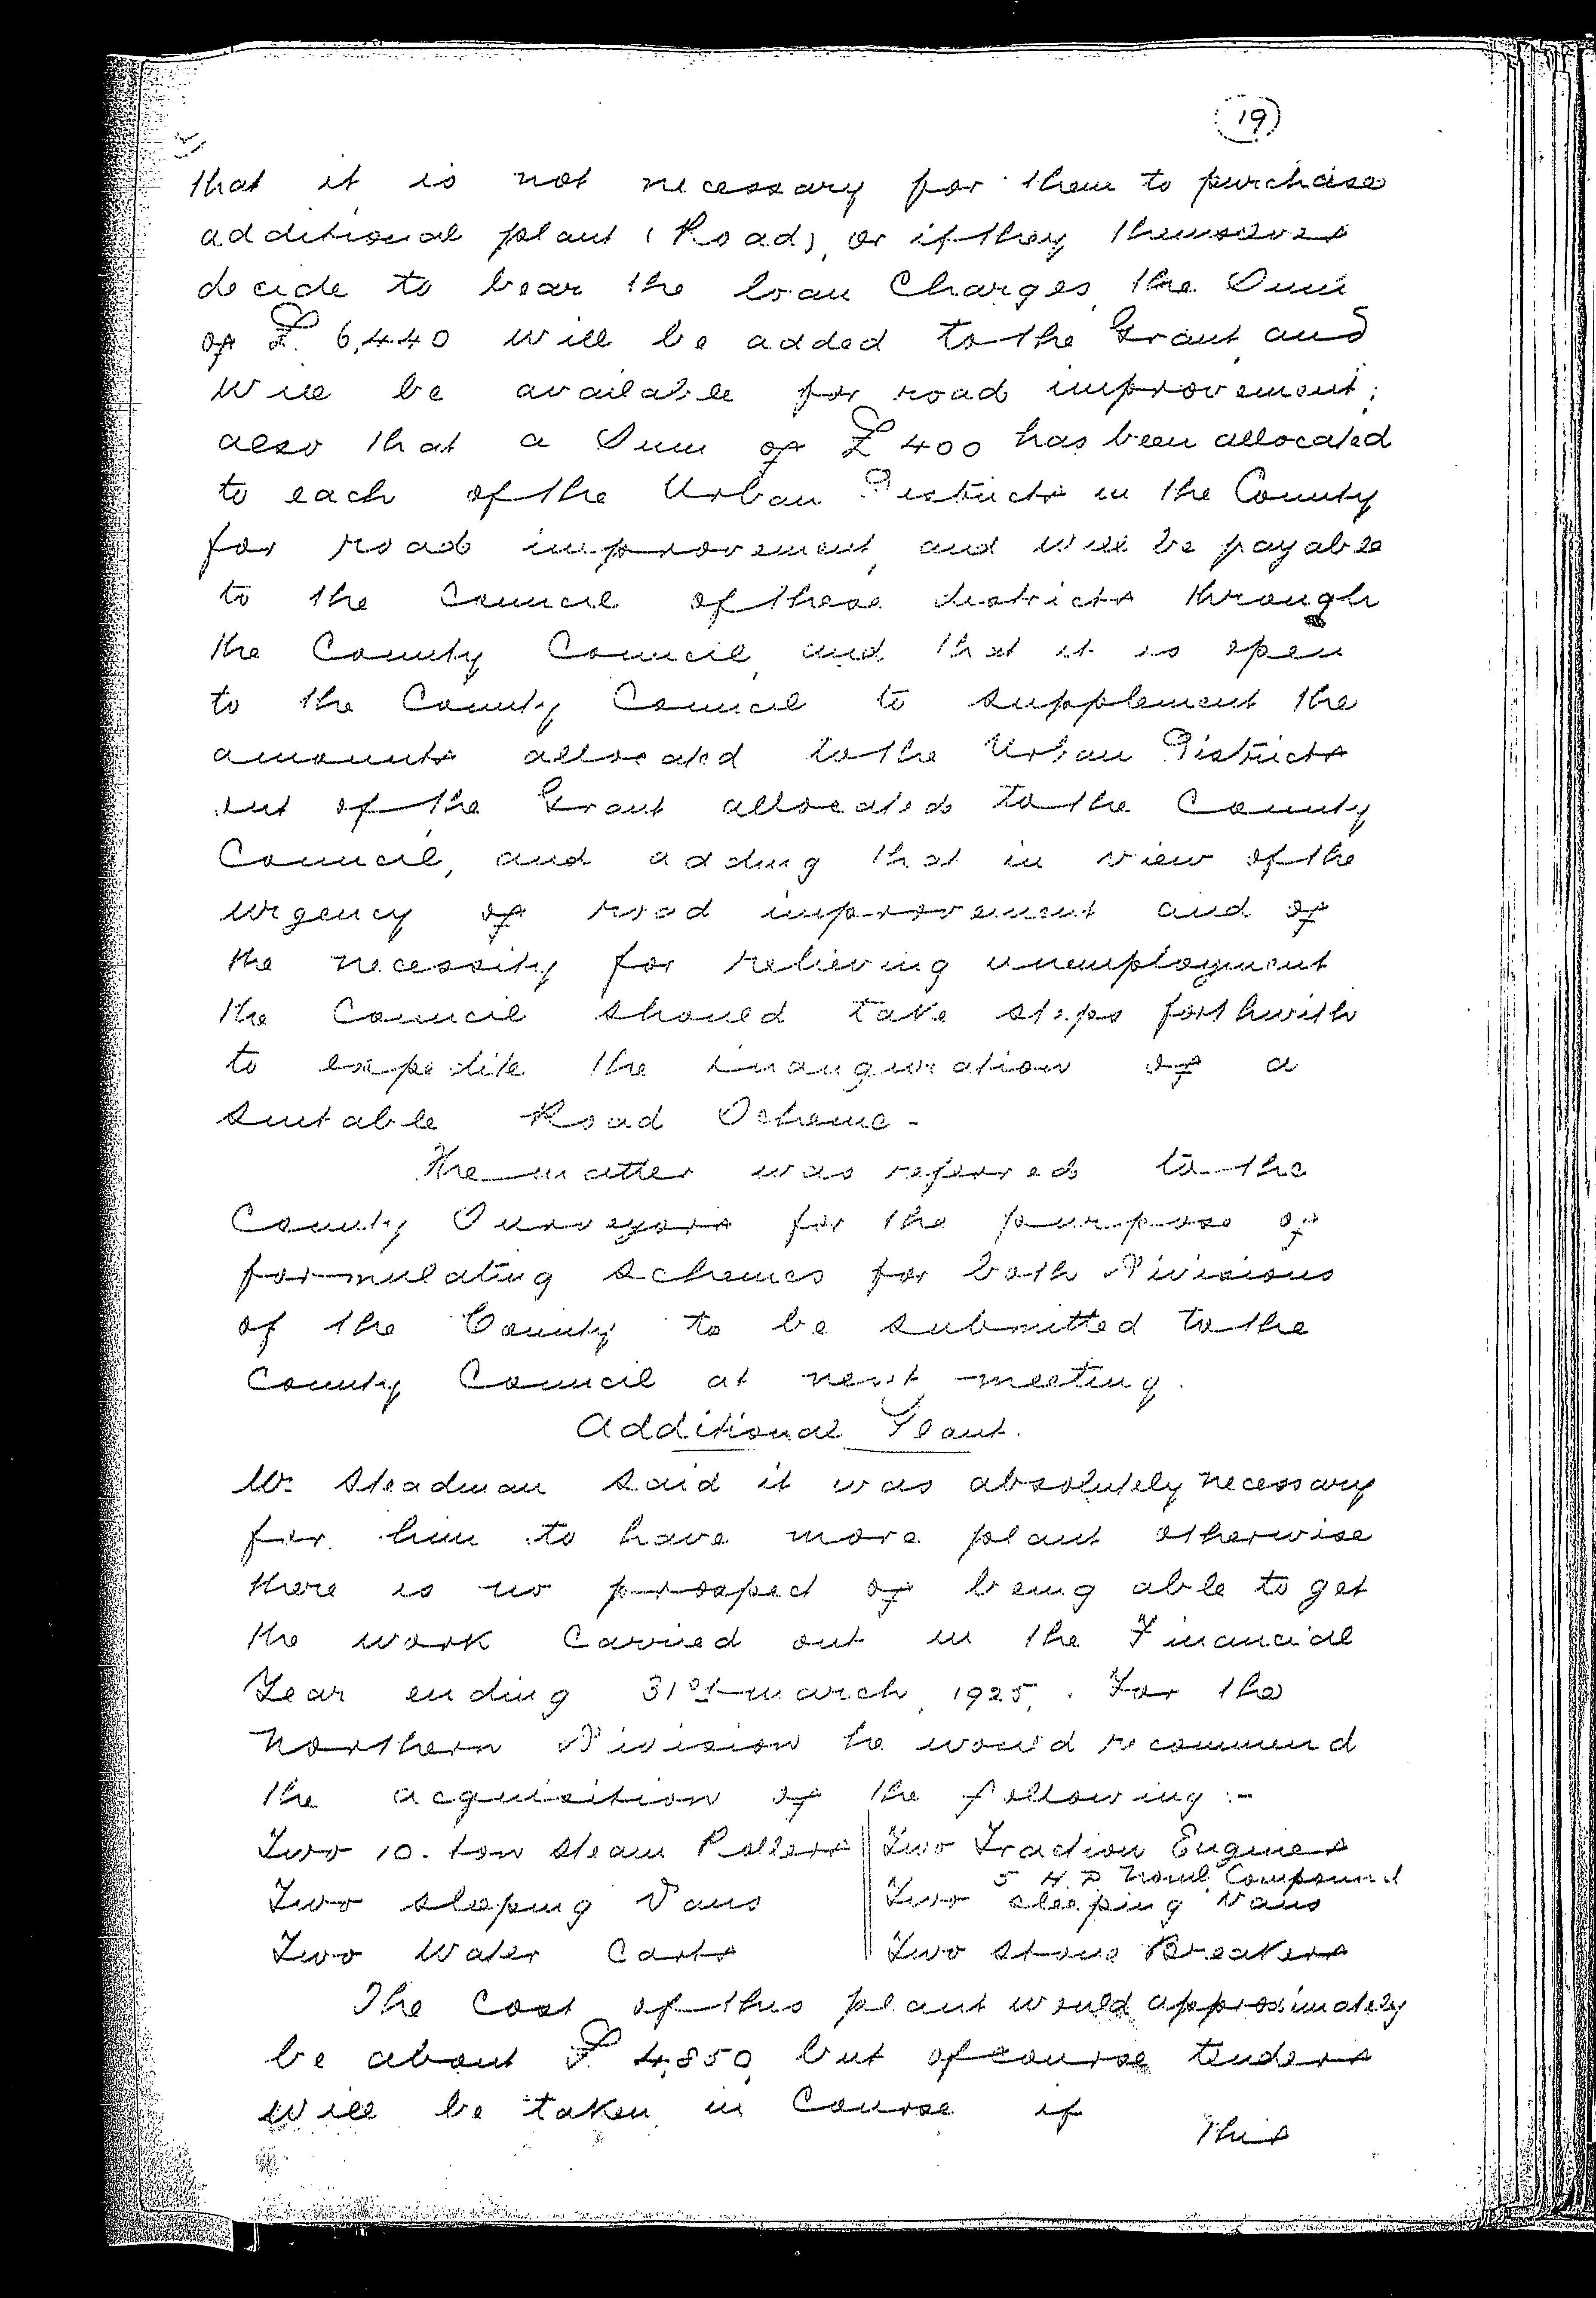 19
that it is not necessary for them to purchase
additional plant (Road), or if they themselves
decide to bear the loan Charges, the Sum
of £6,440 will be added to the Grant, and
will be available for road improvement;
also that a Sum of £400 has been allocated
to each of the Urban Districts in the County
for road improvement, and will be payable
to the Council of these districts through
the County Council, and that it is open
to the County Council to supplement the
amounts allocated to the Urban Districts
out of the Grant allocated to the County
Council, and adding that in view of the
urgency of road improvement and of
the necessity for relieving unemployment
the Council should take steps forthwith
to expedite the inauguration of a
suitable Road Scheme.
The matter was referred to the
County Surveyors for the purpose of
formulating schemes for both Divisions
of the County to be submitted to the
County Council at next meeting.
Additional Plant.
Mr Steadman said it was absolutely necessary
for him to have more plant otherwise
there is no prospect of being able to get
the work carried out in the Financial
Year ending 31st March, 1925. For the
Northern Division he would recommend
the acquisition of the following:-
Two 10. ton steam Rollers
Two sleeping Vans
Two Water Carts
Two Traction Engines
5 H.P. Noml Compound
Two sleeping Vans
Two Stone Breakers
The cost of this plant would approximately
be about £4,850, but of course, tenders
will be taken in Course if
this